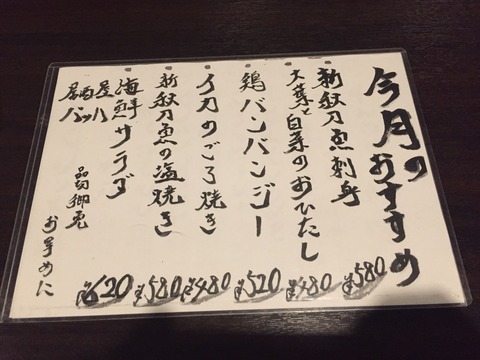 今月のおすすめ
新秋刀魚刺身 ¥580
大葉と白菜のおひたし ¥480
鶏バンバンジー ¥520
イカのごろ焼き ¥480
新秋刀魚の塩焼き ¥580
海鮮サラダ ¥620
居酒屋バッハ
品切御免
お早めに